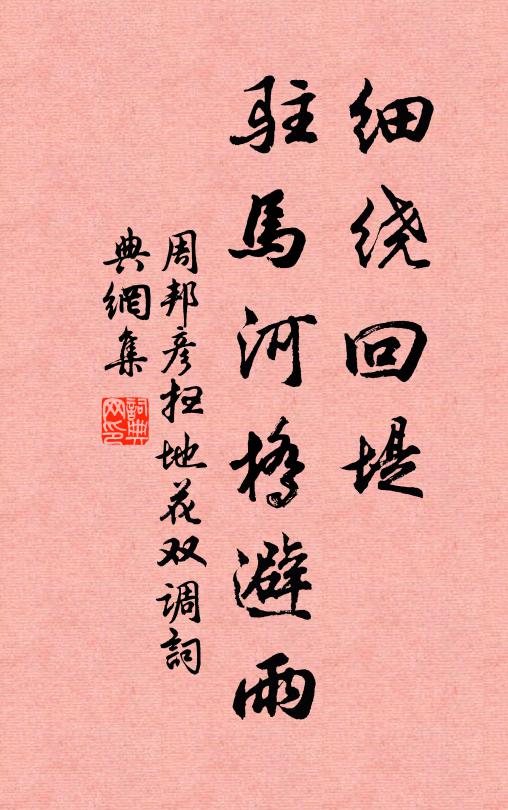 细绕回堤
驻馬河橋避雨
周邦彦扫地花双调詞
典網集
詞典網印